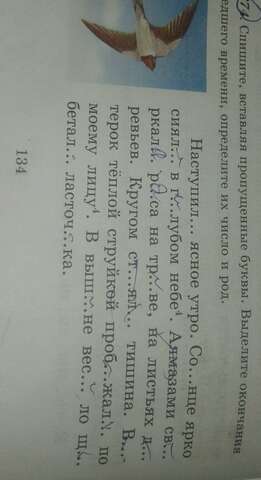 Спишите, вставляя пропущенные буквы. Выделите окончания
едшего времени, определите их число и род.
Наступил... ясное утро. Со...нце ярко
сиял... в г...лубом небе⁴. Алмазами св...
ркал... р...са на тр...ве, на листьях д...
ревьев. Кругом ст...ял... тишина. В...
терок тёплой струйкой проб...жал... по
моему лицу⁴. В выш...не вес...ло щ...
бетал... ласточ...ка.
134